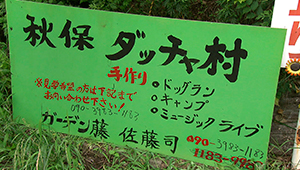 秋保 ダッチャ村
手作り
※見学希望の方は下記まで
お問い合わせ下さい!
。ドッグラン
。キャンプ
。ミュージックライブ
090-3983-1183
ガーデン藤 佐藤司
090-3983-1183